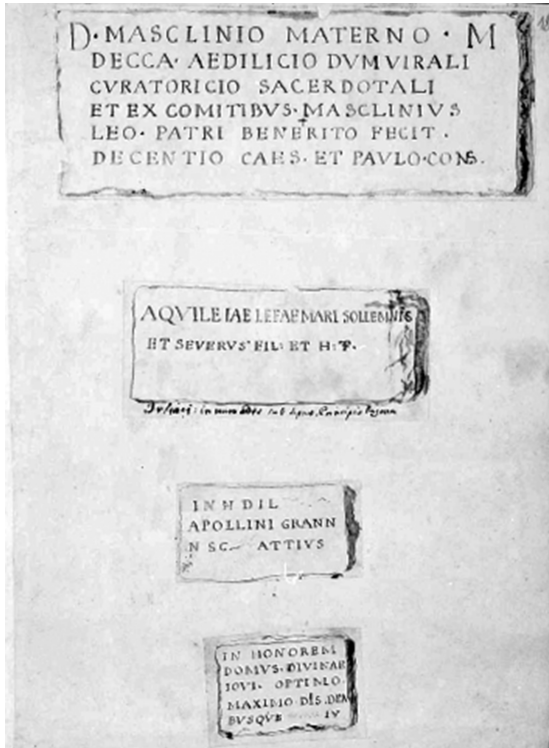 D · MASCLINIO MATERNO · M
DECCA · AEDILICIO DVMVIRALI
CVRATORICIO SACERDOTALI
ET EX COMITIBVS · MASCLINIVS
LEO · PATRI BENERITO FECIT ·
DECENTIO CAES · ET PAVLO · CONS ·
AQVILEIAE LEFAE MARI SOLLEMNIS
ET SEVERVS FIL : ET H : F ·
IN H D
APOLLINI GRANN
N SC ATTIVS
IN HONOREM
DOMVS · DIVINAE
IOVI · OPTIMO ·
MAXIMO DIS · DEA
BVSQVE IV